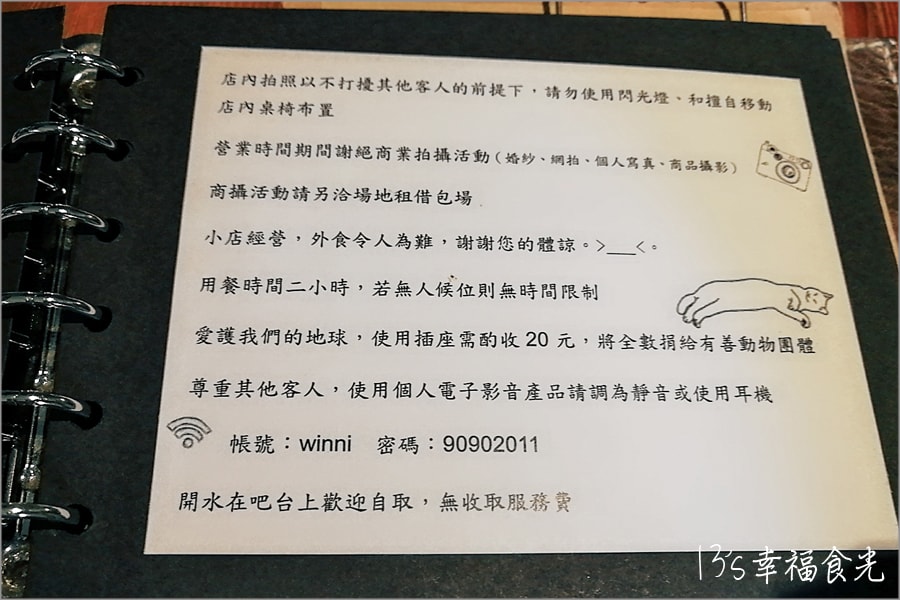 店內拍照以不打擾其他客人的前提下，請勿使用閃光燈、和擅自移動
店內桌椅布置
營業時間期間謝絕商業拍攝活動（婚紗、網拍、個人寫真、商品攝影）
商攝活動請另洽場地租借包場
小店經營，外食令人為難，謝謝您的體諒。>___<。
用餐時間二小時，若無人候位則無時間限制
愛護我們的地球，使用插座需酌收 20 元，將全數捐給有善動物團體
尊重其他客人，使用個人電子影音產品請調為靜音或使用耳機
帳號：winni 密碼：90902011
開水在吧台上歡迎自取，無收取服務費
13's幸福食光